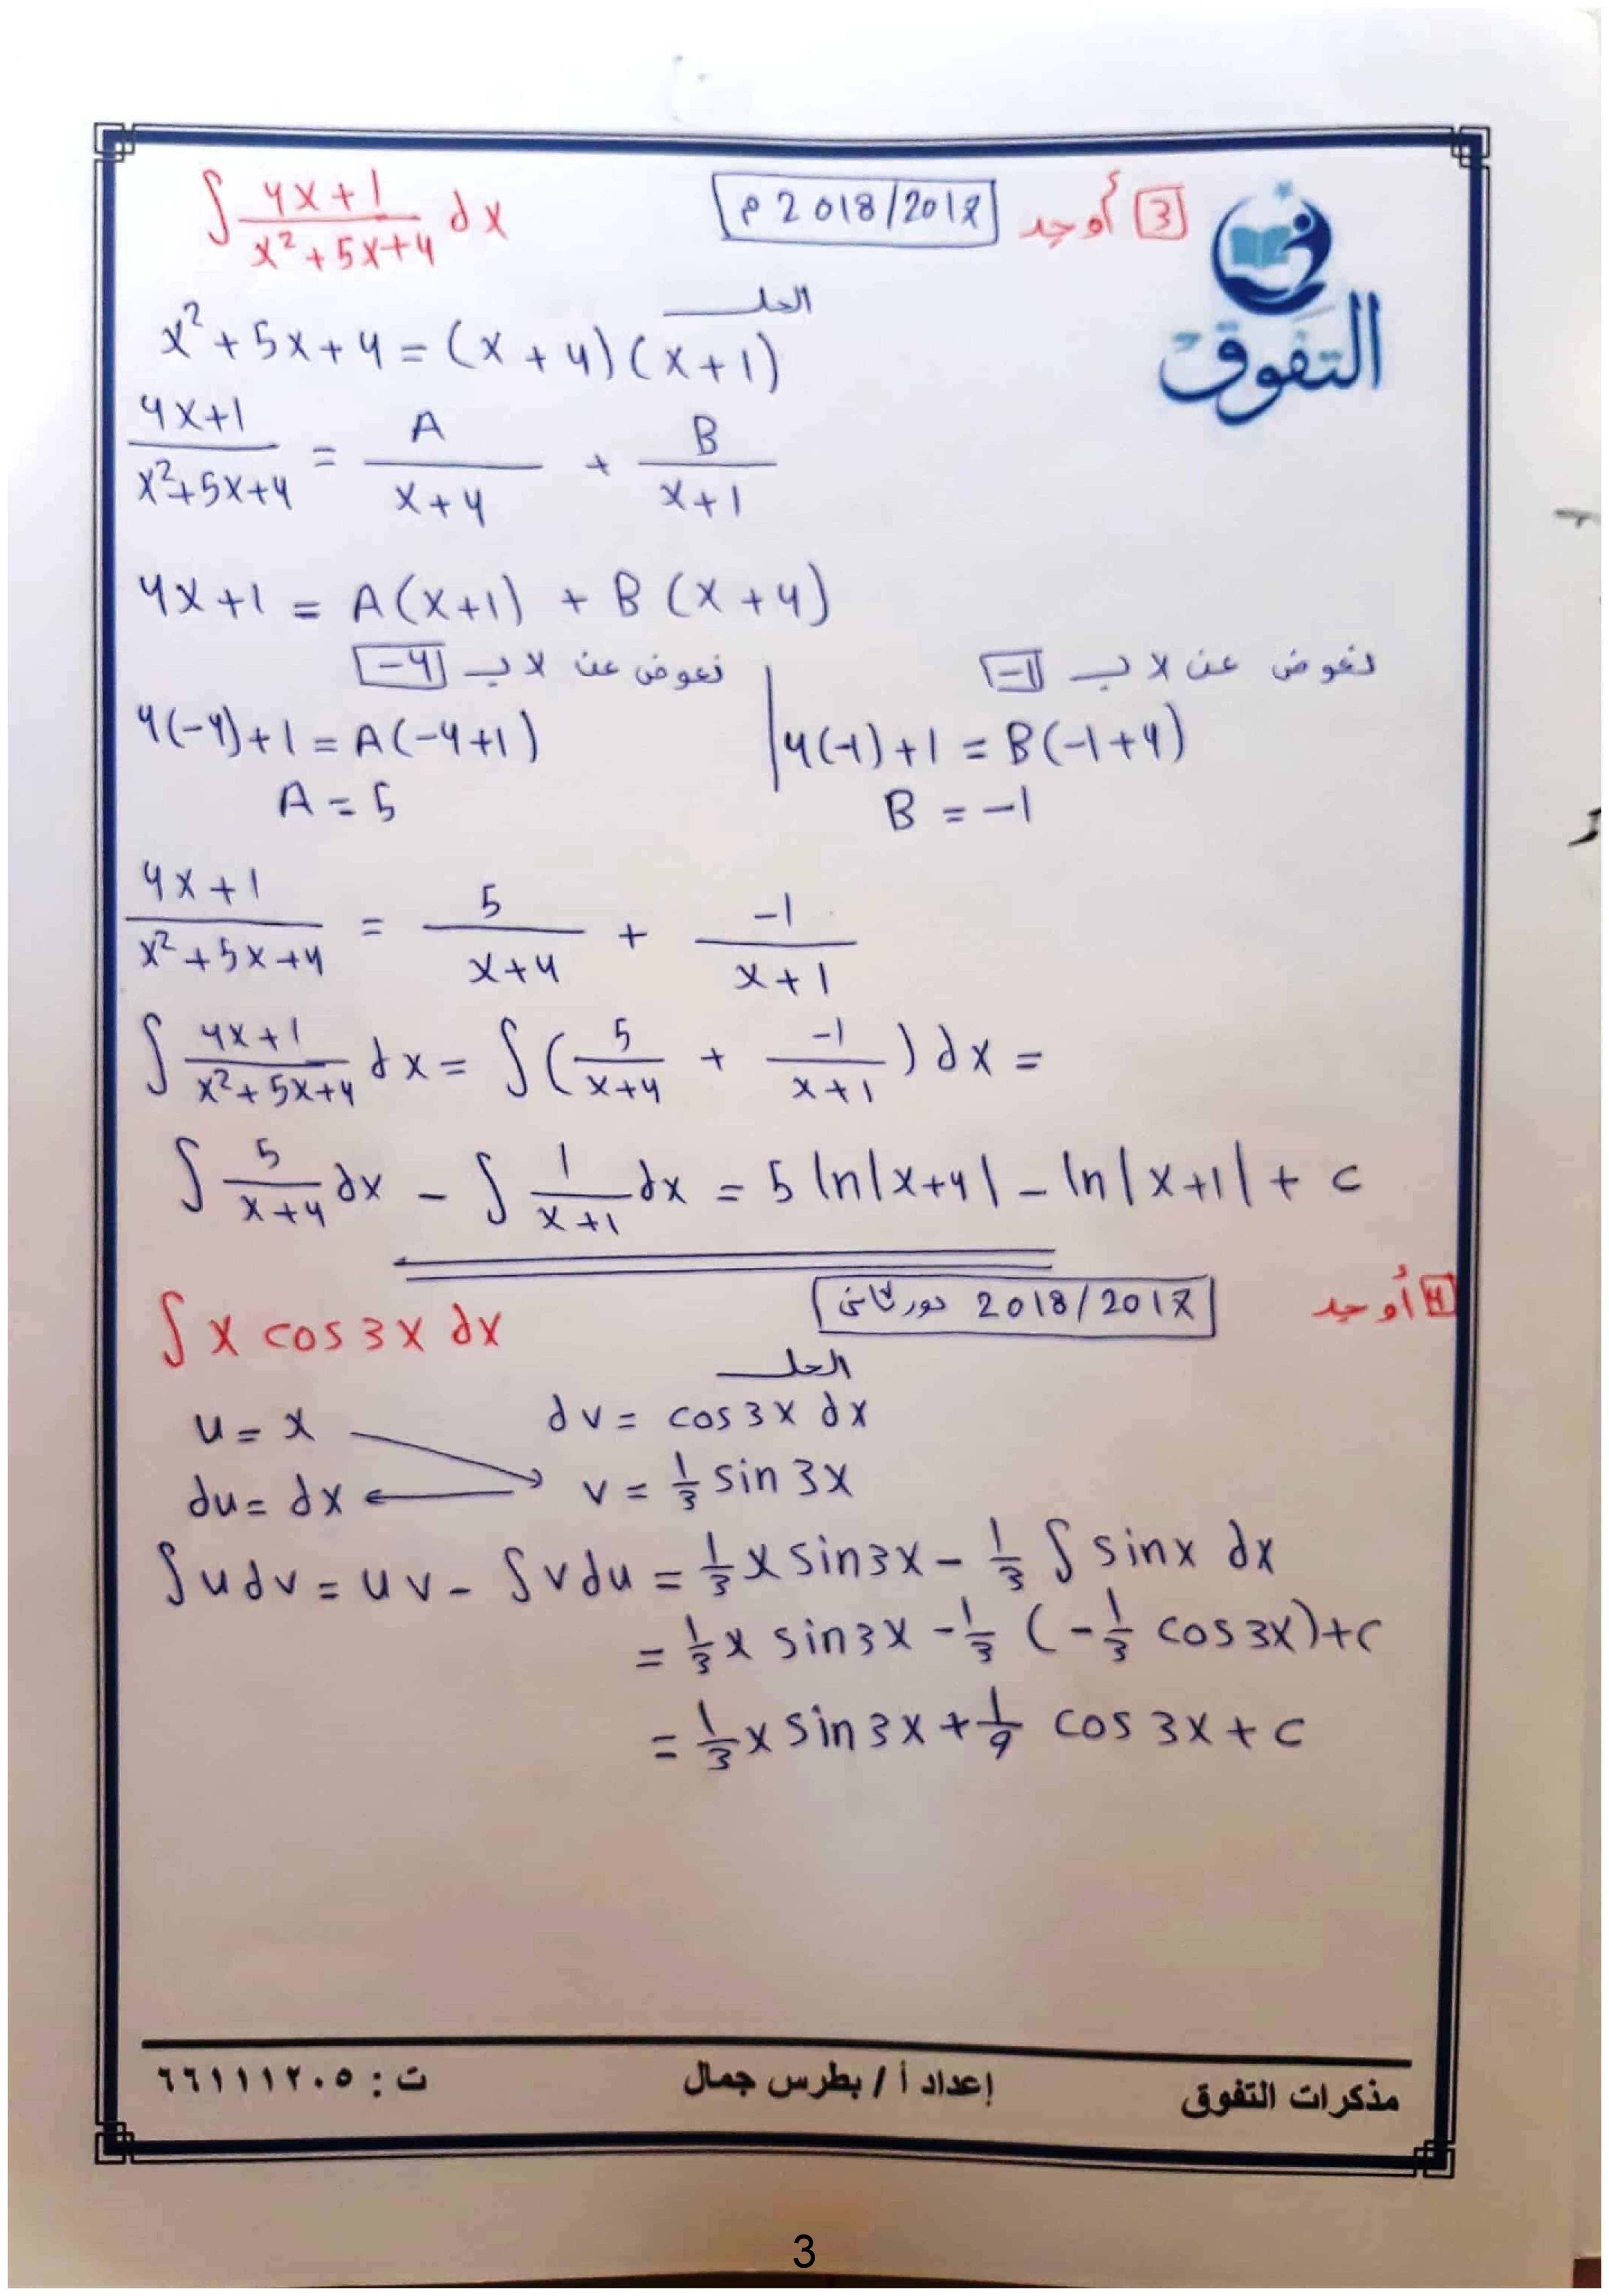 3 أوجد 2018/2017 م ∫ (4x+1)/(x²+5x+4) dx
التفوق
الحل
x²+5x+4 = (x+4)(x+1)
(4x+1)/(x²+5x+4) = A/(x+4) + B/(x+1)
4x+1 = A(x+1) + B(x+4)
نعوض عن x ب -4
4(-4)+1 = A(-4+1)
A = 5
نعوض عن x ب -1
4(-1)+1 = B(-1+4)
B = -1
(4x+1)/(x²+5x+4) = 5/(x+4) + -1/(x+1)
∫ (4x+1)/(x²+5x+4) dx = ∫ (5/(x+4) + -1/(x+1)) dx =
∫ 5/(x+4) dx - ∫ 1/(x+1) dx = 5 ln|x+4| - ln|x+1| + c
4 أوجد 2018/2017 دور ثاني ∫ x cos3x dx
الحل
u = x dv = cos3x dx
du = dx v = 1/3 sin 3x
∫udv = uv - ∫vdu = 1/3 x sin3x - 1/3 ∫ sinx dx
= 1/3 x sin3x - 1/3 (-1/3 cos3x)+c
= 1/3 x sin3x + 1/9 cos 3x + c
مذكرات التفوق إعداد أ / بطرس جمال ت : ٦٦١١١٢٠٥
3